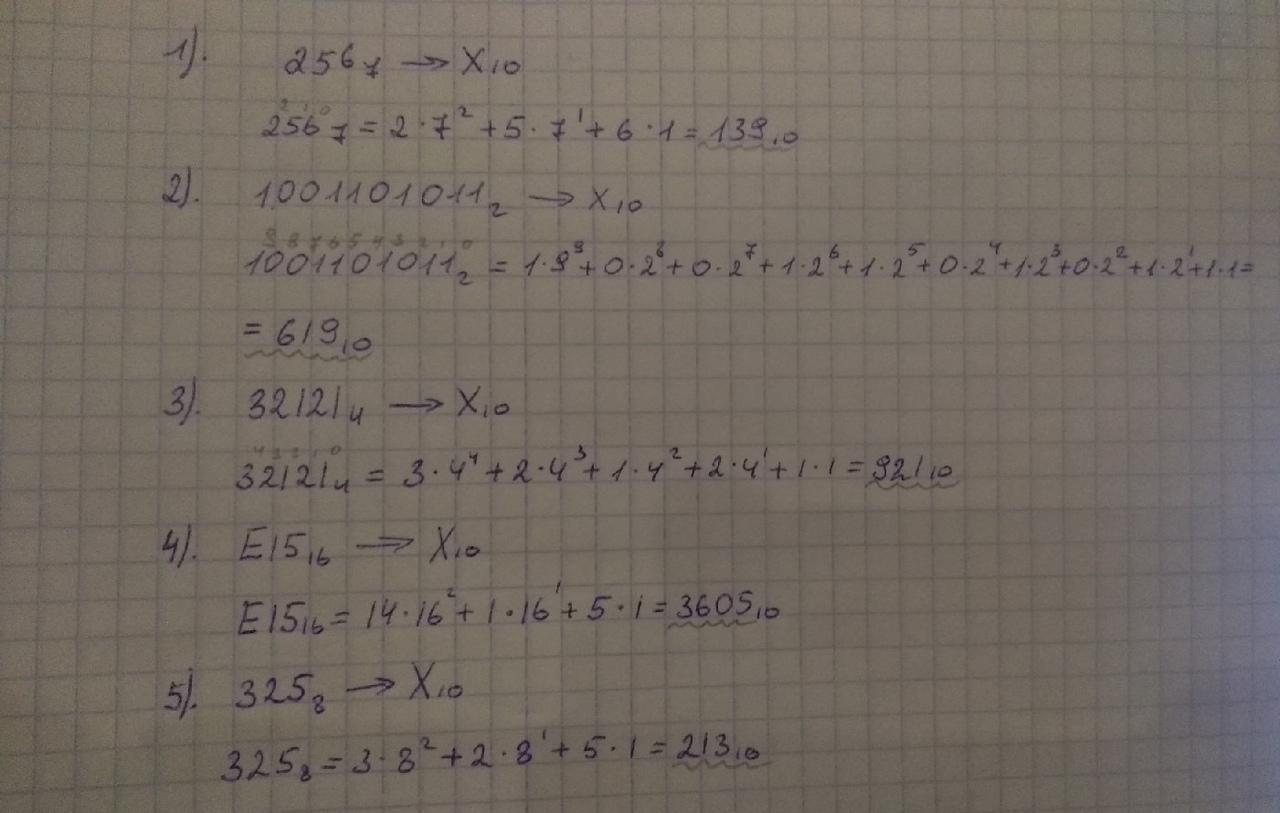 1). 256₇ → X₁₀
2 1 0
256₇ = 2·7² + 5·7¹ + 6·1 = 139₁₀
2). 1001101011₂ → X₁₀
9 8 7 6 5 4 3 2 1 0
1001101011₂ = 1·9⁹ + 0·2⁸ + 0·2⁷ + 1·2⁶ + 1·2⁵ + 0·2⁴ + 1·2³ + 0·2² + 1·2¹ + 1·1 =
= 619₁₀
3). 32121₄ → X₁₀
4 3 2 1 0
32121₄ = 3·4⁴ + 2·4³ + 1·4² + 2·4¹ + 1·1 = 921₁₀
4). E15₁₆ → X₁₀
E15₁₆ = 14·16² + 1·16¹ + 5·1 = 3605₁₀
5). 325₈ → X₁₀
325₈ = 3·8² + 2·8¹ + 5·1 = 213₁₀